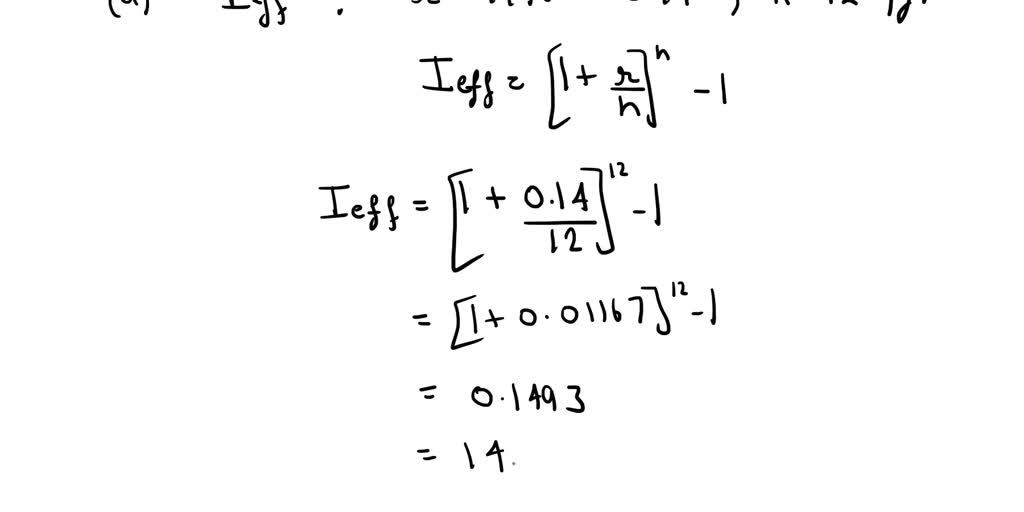 (a) Ieff
Ieff = [1 + r/n]^n - 1
Ieff = [1 + 0.14/12]^12 - 1
= [1 + 0.01167]^12 - 1
= 0.1493
= 14.